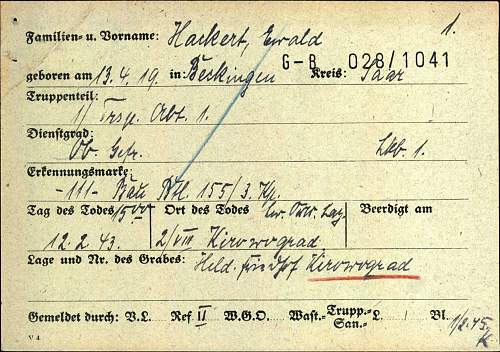 1.
Familien- u. Vorname: Hackert, Ewald
G-B 028/1041
geboren am 13.4.19. in: Beckingen Kreis: Saar
Truppenteil:
1/ Trsp. Abt. 1.
Dienstgrad:
Ob. Gefr. Lkb. 1.
Erkennungsmarke:
-111- Bau Btl. 155/3. Kp.
Tag des Todes 15⁰⁰ Ort des Todes Beerdigt am
12.2.43. 2/VIII Kirowograd
Lage und Nr. des Grabes: Held. Friedhof Kirowograd
Gemeldet durch: V.L. Ref II W.G.O. Wast.- Trupp.- San.- L. / Bl. 1/2.45.
V 4